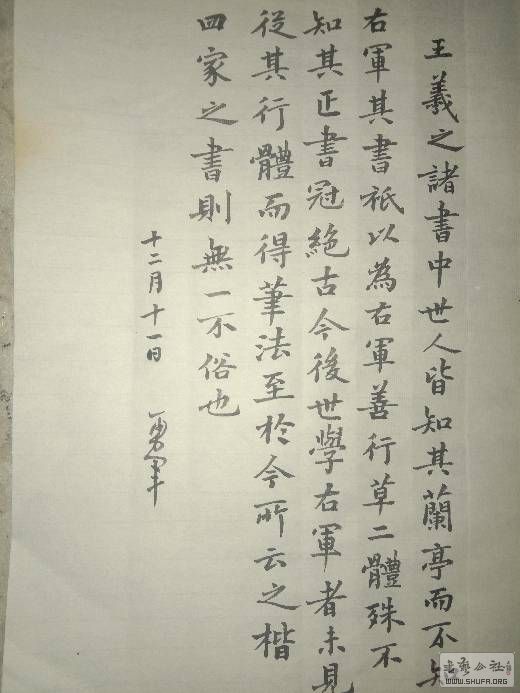 王羲之諸書中世人皆知其蘭亭而不知
右軍其書祇以為右軍善行草二體殊不
知其正書冠絕古今後世學右軍者未見
從其行體而得筆法至於今所云之楷
四家之書則無一不俗也
十二月十一日 勇軍
書藝公社
WWW.SHUFA.ORG